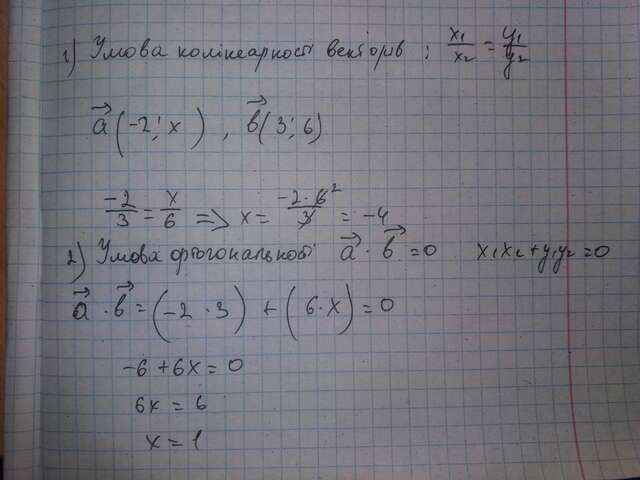 1) Умова колінеарності векторів : x₁/x₂ = y₁/y₂
a⃗ (-2; x) , b⃗ (3; 6)
-2/3 = x/6 => x = -2·6²/3 = -4
2) Умова ортогональності a⃗ · b⃗ = 0 x₁x₂ + y₁y₂ = 0
a⃗ · b⃗ = (-2 · 3) + (6 · x) = 0
-6 + 6x = 0
6x = 6
x = 1